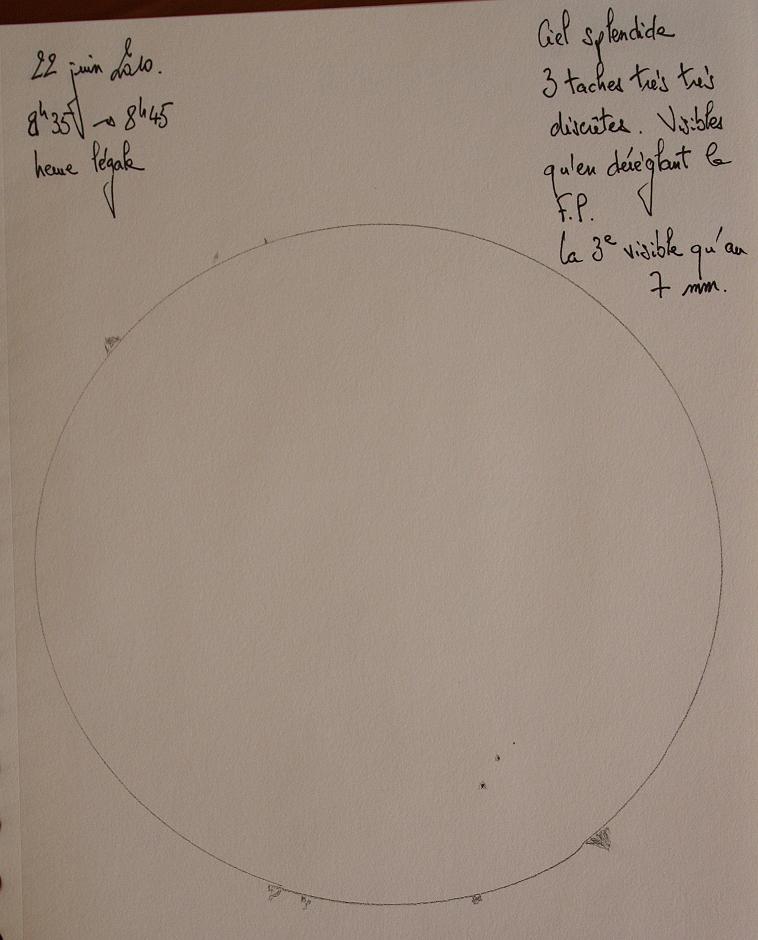 22 juin 2010.
8h35 → 8h45
heure légale
Ciel splendide
3 taches très très
discrètes. Visibles
qu'en déréglant le
F.P.
la 3e visible qu'au
7 mm.